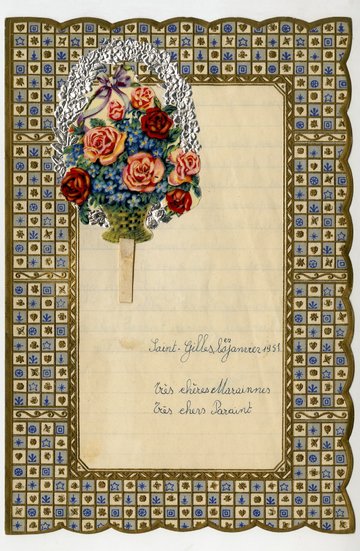 Saint-Gilles, le 1er janvier 1951
Très chères Marainnes
Très chers Paraint